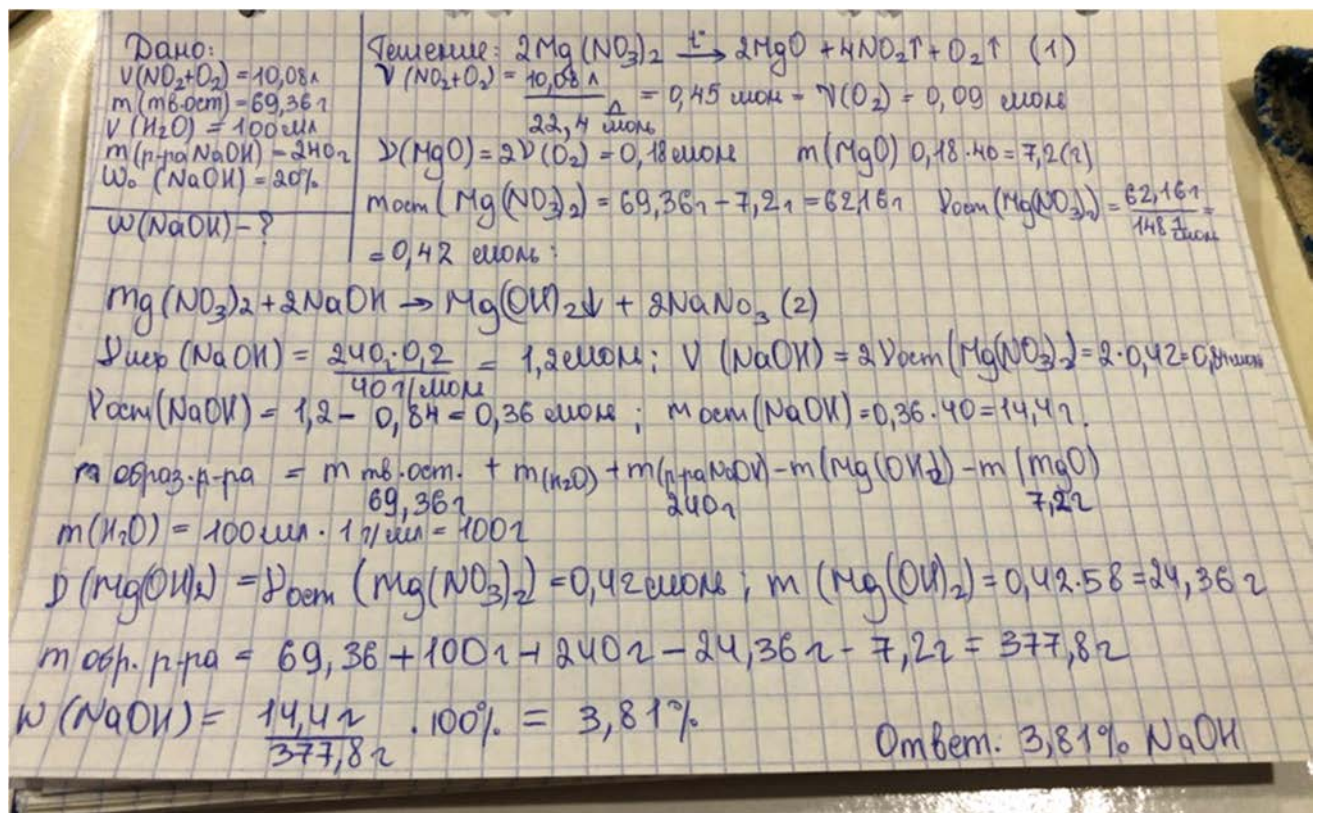 Дано:
V(NO₂+O₂)=10,08л
m(тв.ост)=69,36г
V(H₂O)=100мл
m(р-ра NaOH)-240г
W₀(NaOH)=20%
W(NaOH)-?
Решение: 2Mg(NO₃)₂ →t° 2MgO+4NO₂↑+O₂↑ (1)
ν(NO₂+O₂)=10,08л/22,4 л/моль = 0,45 моль - ν(O₂)=0,09 моль
ν(MgO)=2ν(O₂)=0,18моль m(MgO) 0,18·40=7,2(г)
mост(Mg(NO₃)₂)=69,36г-7,2г=62,16г νост(Mg(NO₃)₂)=62,16г/148 г/моль=
=0,42 моль:
Mg(NO₃)₂+2NaOH→Mg(OH)₂↓+2NaNO₃(2)
νиср(NaOH)=240·0,2/40 г/моль=1,2моль; ν(NaOH)=2νост(Mg(NO₃)₂=2·0,42=0,84моль
νост(NaOH)=1,2-0,84=0,36 моль; mост(NaOH)=0,36·40=14,4г.
m образ.р-ра = m тв.ост.+m(H₂O)+m(р-ра NaOH)-m(Mg(OH₂)-m(MgO)
69,36г 240г 7,2г
m(H₂O)=100мл·1г/мл=100г
ν(Mg(OH)₂)=νост(Mg(NO₃)₂)=0,42моль; m(Mg(OH)₂)=0,42·58=24,36г
m обр.р-ра=69,36+100г+240г-24,36г-7,2г=377,8г
W(NaOH)=14,4г/377,8г·100%=3,81%
Ответ. 3,81% NaOH